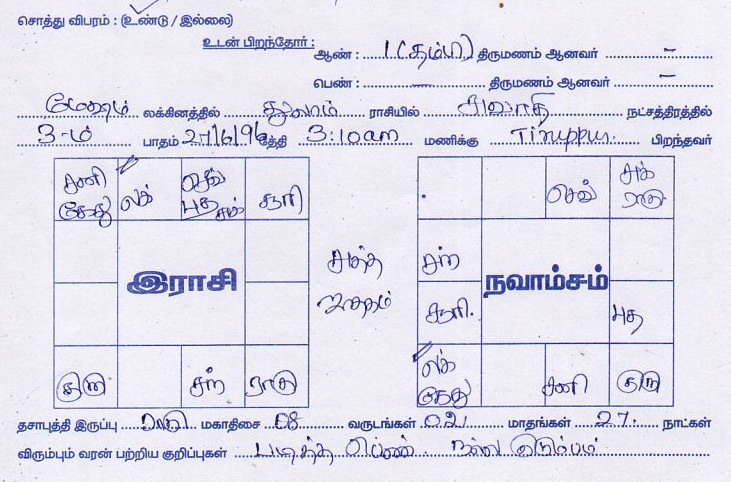 சொத்து விபரம் : (உண்டு / இல்லை)
உடன் பிறந்தோர் : ஆண் : 1 (தம்பி) திருமணம் ஆனவர் –
பெண் : – திருமணம் ஆனவர் –
மேஷம் லக்கினத்தில் துலாம் ராசியில் சுவாதி நட்சத்திரத்தில்
3-ம் பாதம் 27/6/96 தேதி 3:10am மணிக்கு Tiruppur. பிறந்தவர்
சனி கேது லக் செவ் புத சுக் சூரி
செவ் சுக் ராகு
இராசி
சுத்த ஜாதகம்
சந்
நவாம்சம்
சூரி. புத
குரு சந் ராகு
லக் கேது சனி குரு
தசாபுத்தி இருப்பு ராகு மகாதிசை 08 வருடங்கள் 02 மாதங்கள் 27 நாட்கள்
விரும்பும் வரன் பற்றிய குறிப்புகள் படித்த பெண் நல்ல குடும்பம்